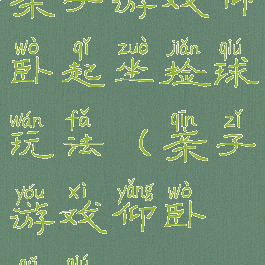 亲子游戏仰
wò qǐ zuò jiǎn qiú
卧起坐捡球
wán fǎ qīn zǐ
玩法（亲子
yóu xì yǎng wò
游戏仰卧
qǐ qiú